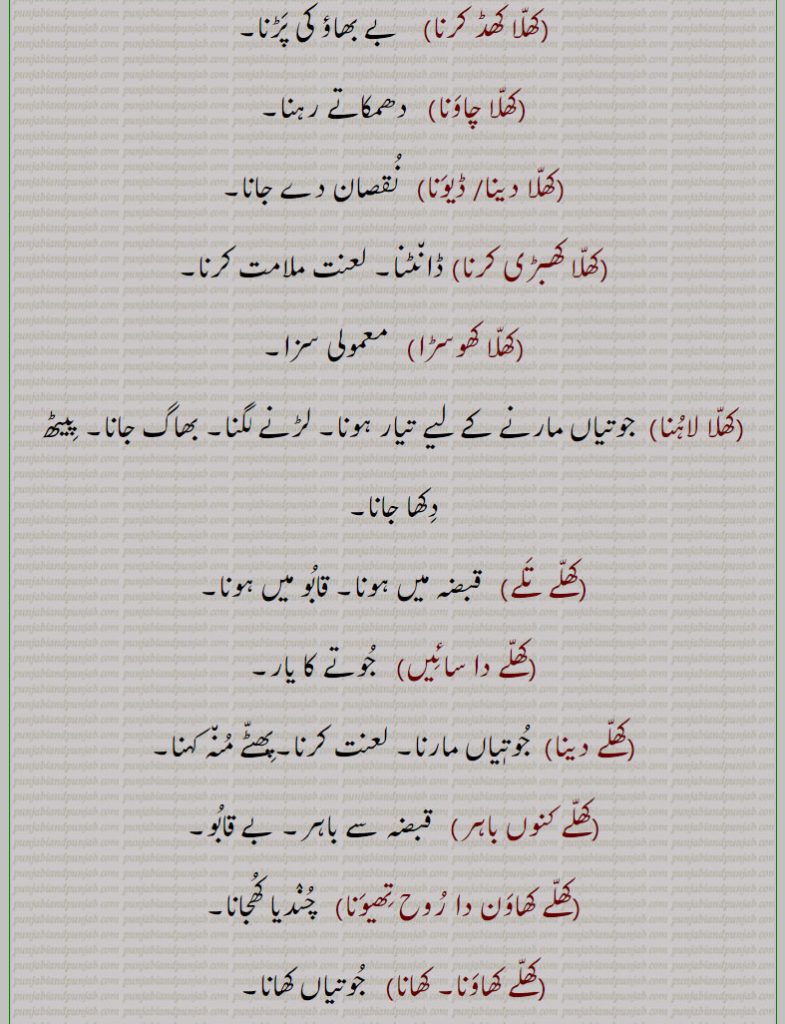 (کھلّا کھڈ کرنا) بے بھاؤ کی پَڑنا۔
(کھلّا چاوَنا) دھمکاتے رہنا۔
(کھلّا دینا/ ڈیوَنا) نُقصان دے جانا۔
(کھلّا کھبڑی کرنا) ڈانٹنا۔ لعنت ملامت کرنا۔
(کھلّا کھوسڑا) معمولی سزا۔
(کھلّا لاہُنا) جوتیاں مارنے کے لیے تیار ہونا۔ لڑنے لگنا۔ بھاگ جانا۔ پِیٹھ
دِکھا جانا۔
(کھلّے تَلے) قبضہ میں ہونا۔ قابُو میں ہونا۔
(کھلّے دا سائِیں) جُوتے کا یار۔
(کھلّے دینا) جُوتیاں مارنا۔ لعنت کرنا۔ پِھٹّے مُنہ کہنا۔
(کھلّے کنوں باہر) قبضہ سے باہر۔ بے قابُو۔
(کھلّے کھاوَن دا رُوح تِھیوَنا) چُندیا کُھجانا۔
(کھلّے کھاوَنا۔ کھانا) جُوتیاں کھانا۔
punjabiandpunjab.com